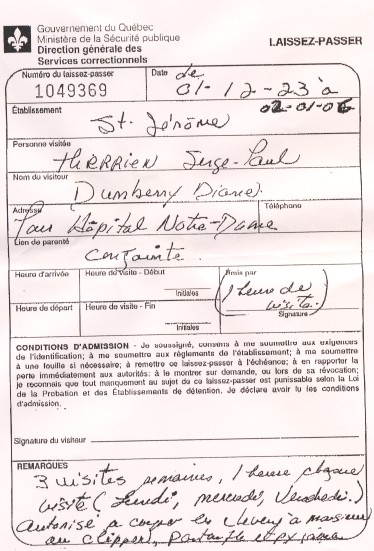 Gouvernement du Québec
Ministère de la Sécurité publique
Direction générale des
Services correctionnels
LAISSEZ-PASSER
Numéro du laissez-passer
1049369
Date de
01-12-23 à
02-01-06
Établissement
St-Jérôme
Personne visitée
THERRIEN Serge-Paul
Nom du visiteur
Dumberry Diane.
Adresse
Téléphone
Pour Hôpital Notre-Dame
Lien de parenté
conjointe.
Heure d'arrivée
Heure de visite - Début
Initiales
Émis par
(1 heure de
visite.)
Signature
Heure de départ
Heure de visite - Fin
Initiales
CONDITIONS D'ADMISSION - Je soussigné, consens à me soumettre aux exigences
de l'identification; à me soumettre aux règlements de l'établissement; à me soumettre
à une fouille si nécessaire; à remettre ce laissez-passer à l'échéance; à en rapporter la
perte immédiatement aux autorités; à le montrer sur demande, ou lors de sa révocation;
je reconnais que tout manquement au sujet de ce laissez-passer est punissable selon la Loi
de la Probation et des Établissements de détention. Je déclare avoir lu les conditions
d'admission.
Signature du visiteur
REMARQUES
3 visites semaines, 1 heure chaque
visite (Lundi, mercredi, Vendredi.)
autorisé à couper les cheveux à monsieur
au clipper,